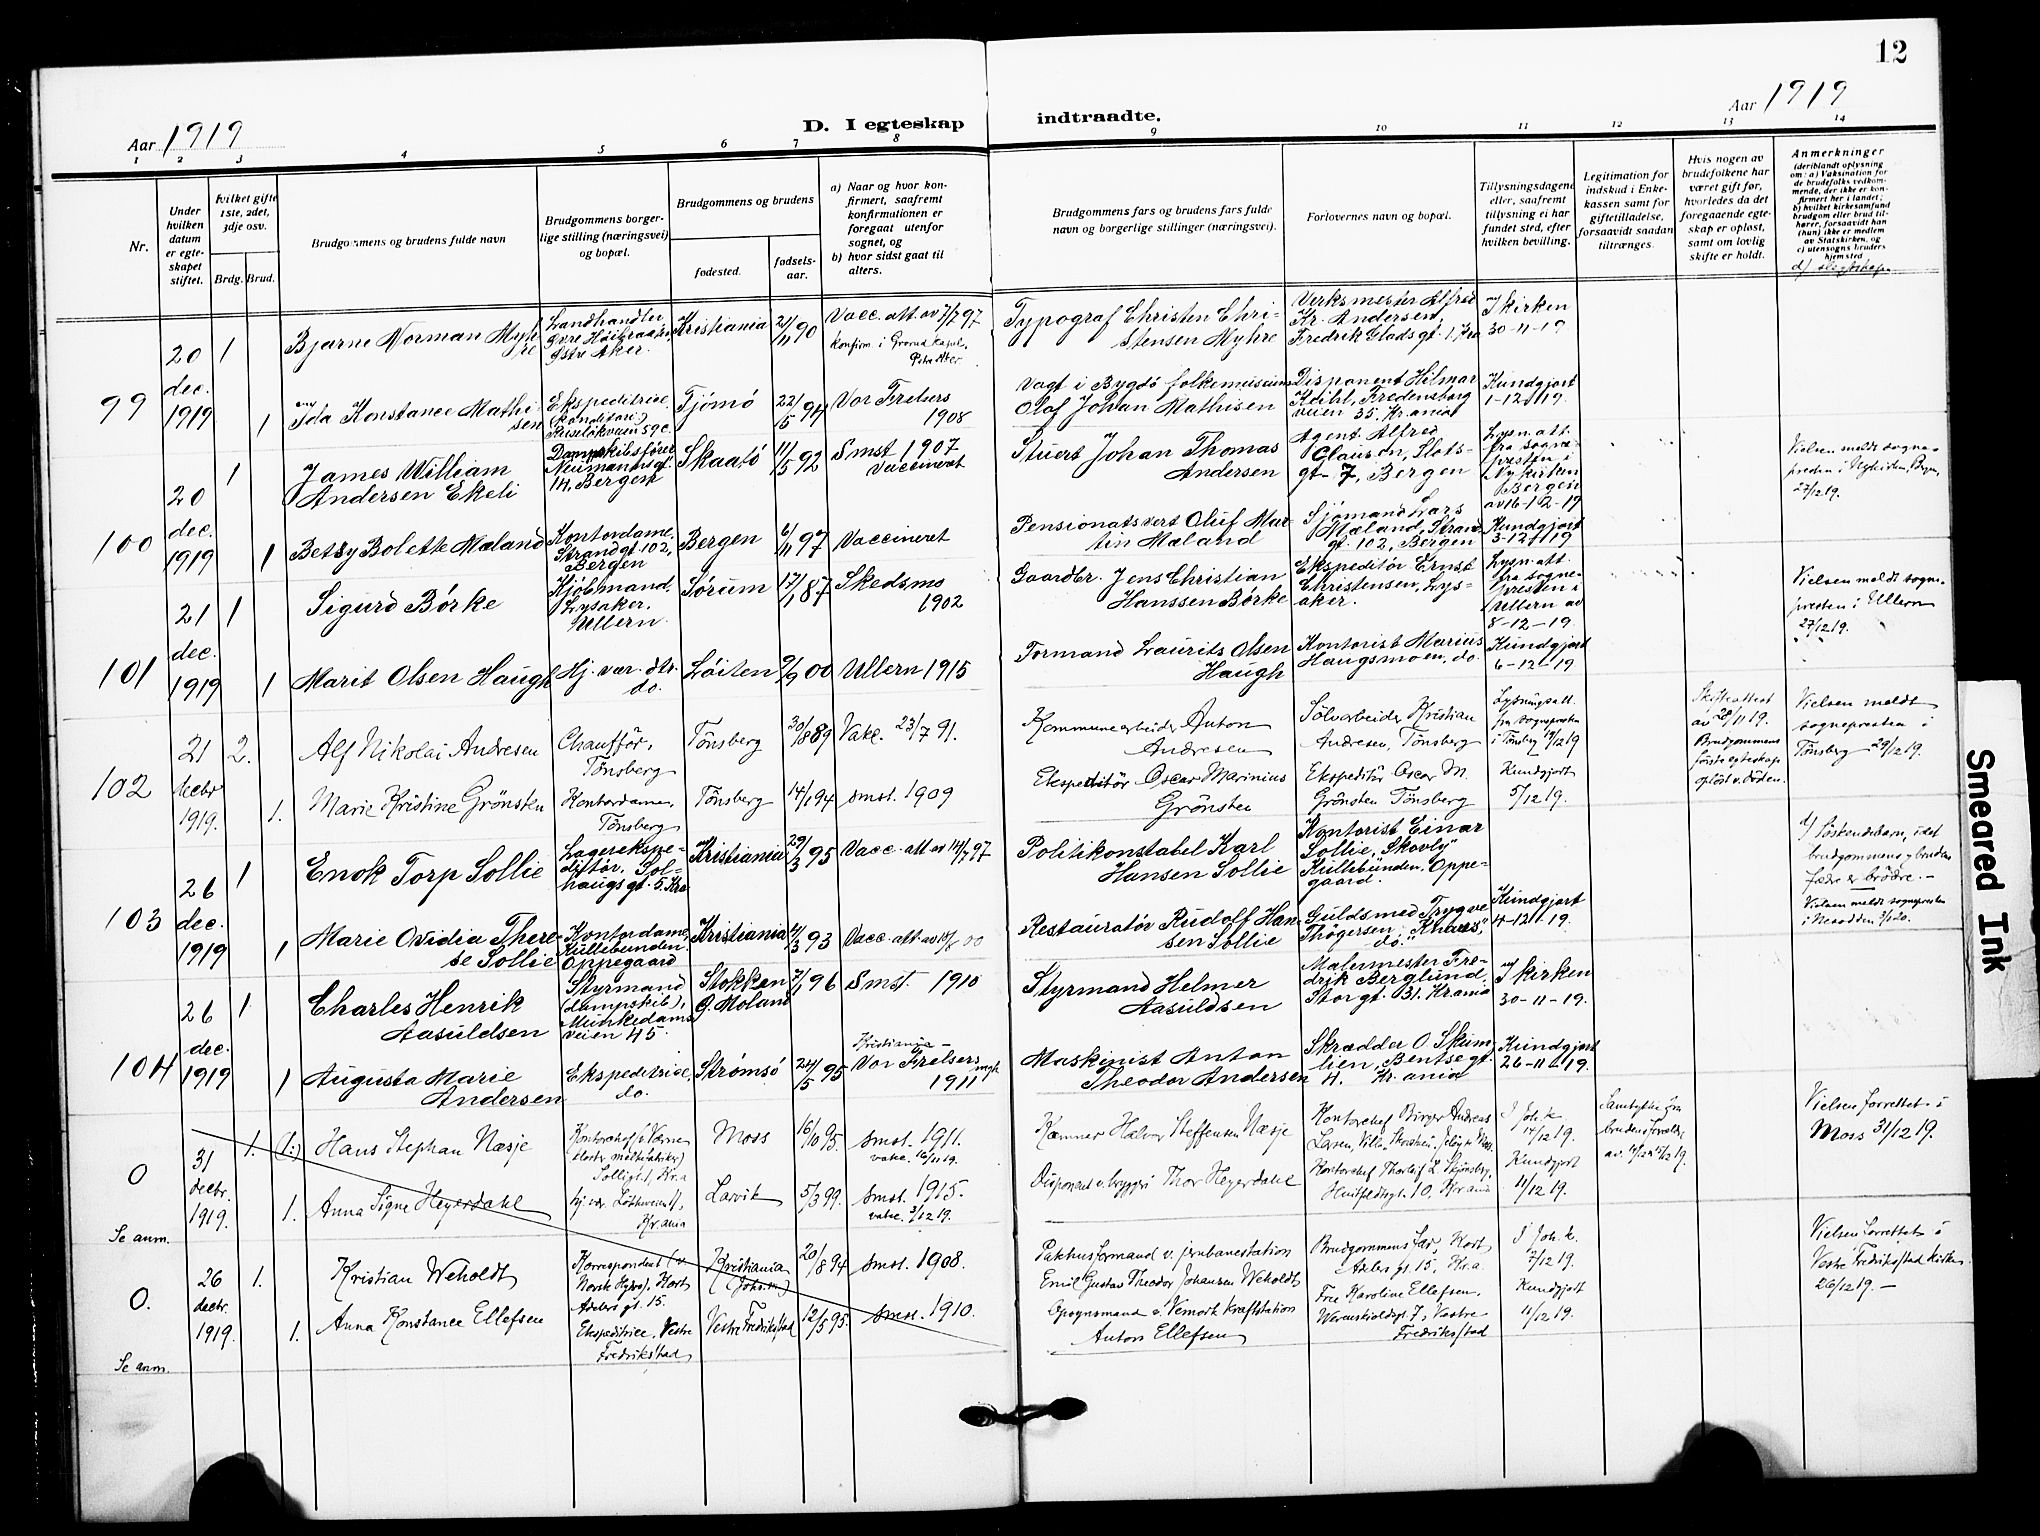 12
Aar 1919
D. I egteskap
indtraadte.
Aar 1919
1 2 3 4 5 6 7 8 9 10 11 12 13 14
Nr.
Under hvilken datum er egteskapet stiftet.
hvilket gifte 1ste, 2det, 3dje osv.
Brdg. Brud.
Brudgommens og brudens fulde navn
Brudgommens borgerlige stilling (næringsvei) og bopæl.
Brudgommens og brudens
fødested.
fødselsaar.
a) Naar og hvor konfirmert, saafremt konfirmationen er foregaat utenfor sognet, og
b) hvor sidst gaat til alters.
Brudgommens fars og brudens fars fulde navn og borgerlige stillinger (næringsvei).
Forlovernes navn og bopæl.
Tillysningsdagene eller, saafremt tillysning ei har fundet sted, efter hvilken bevilling.
Legitimation for indskud i Enkekassen samt for giftetilladelse, forsaavidt saadan tiltrænges.
Hvis nogen av brudefolkene har været gift før, hvorledes da det foregaaende egteskap er opløst, samt om lovlig skifte er holdt.
Anmerkninger
(deriblandt oplysning om: a) Vaksination for de brudefolks vedkommende, der ikke er konfirmert her i landet; b) hvilket kirkesamfund brudgom eller brud tilhører, forsaavidt han (hun) ikke er medlem av Statskirken, og c) utensogns bruders hjemsted
d) slegtskap.
99
20 dec. 1919
1
Bjarne Norman Myhre
Landhandler Øvre Høibraaten, Østre Aker.
Kristiania
21/11 90
Vacc. att. av 7/7 97
konfirm. i Grorud kapel,
Typograf Christen Christensen Myhre
Verksmester Alfred Kr. Andersen, Fredrik Glads gt. 1, Kra
I kirken 30-11-19.
1
Ida Konstance Mathisen
Ekspeditrice (konditori) Ruseløkveien 59c.
Tjømø
22/5 94
Vor Frelsers 1908
Vagt i Bygdø folkemuseum Olaf Johan Mathisen
Disponent Hilmar Keihl, Fredensborgveien 35, Kr.ania
Kundgjort 1-12-19.
100
20 dec. 1919
1
James William Andersen Ekeli
Dampskibsfører Neumannsgt. 14, Bergen
Skaatø
11/5 92
Smst 1907 Vaccineret
Stuert Johan Thomas Andersen
Agent Alfred Clausen, Slotsgt- 7, Bergen
Lysn. att. fra sognepresten i Nykirken Bergen av 16-12-19
Vielsen meldt sognepresten i Nykirken, Bergen, 27/12 19.
1
Betsy Bolette Mæland
Kontordame, Strandgt. 102, Bergen
Bergen
6/11 97
Vaccineret
Pensionatsvert Oluf Martin Mæland
Sjømand Lars Mæland, Strandgt. 102, Bergen
Kundgjort 3-12-19
101
21 dec. 1919
1
Sigurd Børke
Kjøbmand, Lysaker, Ullern.
Sørum
17/1 87
Skedsmo 1902
Gaardbr. Jens Christian Hanssen Børke
Ekspeditør Ernst Christensen, Lysaker.
Lysn-att. fra sognepresten i Ullern av 8-12-19.
Vielsen meldt sognepresten i Ullern 27/12 19.
1
Marit Olsen Haugh
Hj. vær. dtr. do.
Løiten
9/9 00
Ullern 1915
Formand Laurits Olsen Haugh
Kontorist Marius Haugsmoen, do.
Kundgjort 6-12-19
102
21 decbr 1919.
2.
Alf Nikolai Andresen
Chauffør, Tønsberg
Tønsberg
30/8 89
Vakc. 23/7 91.
Kommunearbeider Anton Andresen
Sølvarbeider Kristian Andresen, Tønsberg
Lysningsatt. fra sognepresten i Tønsberg 19/12 19
Skifteattest av 20/11 19. Brudgommens første egteskap opløst v. døden.
Vielsen meldt sognepresten i Tønsberg 29/12 19.
1.
Marie Kristine Grønsten
Kontordame, Tønsberg
Tønsberg
14/1 94
smst. 1909
Ekspeditør Oscar Marinius Grønsten
Ekspeditør Oscar M. Grønsten Tønsberg
Kundgjort 5/12 19.
103
26 dec. 1919
1
Enok Torp Sollie
Lagerekspeditør, Solhaugs gt. 5, Kra
Kristiania
29/3 95
Vacc. att av 14/7 97
Politikonstabel Karl Hansen Sollie
Kontorist Einar Sollie, "Skovly" Kullebunden, Oppegaard
Søskendebarn, idet brudgommens og brudens fædre er brødre. - Vielsen meldt sognepresten i Nesodden 2/1 20.
1
Marie Ovidia Therese Sollie
Kontordame, Kullebunden Oppegaard
Kristiania
4/3 93
Vacc. att. av 18/8 00
Restauratør Rudolf Hansen Sollie
Guldsmed Trygve Thøgersen, do.
Kundgjort 4-12-19.
104
26 dec. 1919
1
Charles Henrik Aasuldsen
Styrmand (dampskib), Munkedamsveien 45.
Stokken Ø. Moland
7/1 96
Smst. 1910
Styrmand Helmer Aasuldsen
Malermester Fredrik Berglund, Storgt. 31. Kr.ania
I kirken 30-11-19.
1
Augusta Marie Andersen
Ekspeditrice, do.
Strømsø
24/5 95
Kristiania - Vor Frelsers mgh 1911
Maskinist Anton Theodor Andersen
Skrædder O. Skumlien, Bentsegt. 4. Kr.ania
Kundgjort 26-11-19.
0
31 decbr. 1919.
Se anm.
1. (1:)
Hans Stephan Næsje
Kontorchef i Værne kloster
Solligt. 1, Kr.a
Moss
16/10 95.
smst. 1911. vakc. 16/11 19.
Kæmner Halvor Steffensen Næsje
Kontorchef Birger Andreas Larsen,
I Joh. k. 14/12 19.
Samtykke fra brudens forældre
Vielsen forrettet i Moss 31/12 19.
1.
Anna Signe Heyerdahl
hj. vær. Kr.ania
Larvik
5/3 99.
smst. 1915. vakc. 3/12 19.
Disponent v. bryggeri Thor Heyerdahl
Kontorchef Thorleif L. Skjønsberg, Huitfeldtsgt. 10, Kr.ania
Kundgjort 11/12 19.
0.
26 decbr. 1919.
Se anm.
1.
Kristian Weholdt
Korrespondent (v. Norsk Hydro), Hort Adelers gt. 15.
Kristiania (Johs. m.)
20/8 94
smst. 1908.
Pakhusformand v. jernbanestation Emil Gustav Theodor Johansen Weholdt
Brudgommens far, Kort Adelers gt. 15, Kr.a.
I Joh. k. 7/12 19.
Vielsen forrettet i Vestre Fredrikstad kirke 26/12 19. -
1.
Anna Konstance Ellefsen
Ekspeditrice, Vestre Fredrikstad
Vestre Fredrikstad
12/5 95.
smst. 1910.
Opsynsmand v. Vemork kraftstation Anton Ellefsen
Fru Karoline Ellefsen, Werenskioldsgt. 7, Vestre Fredrikstad
Kundgjort 11/12 19.
Smeared Ink